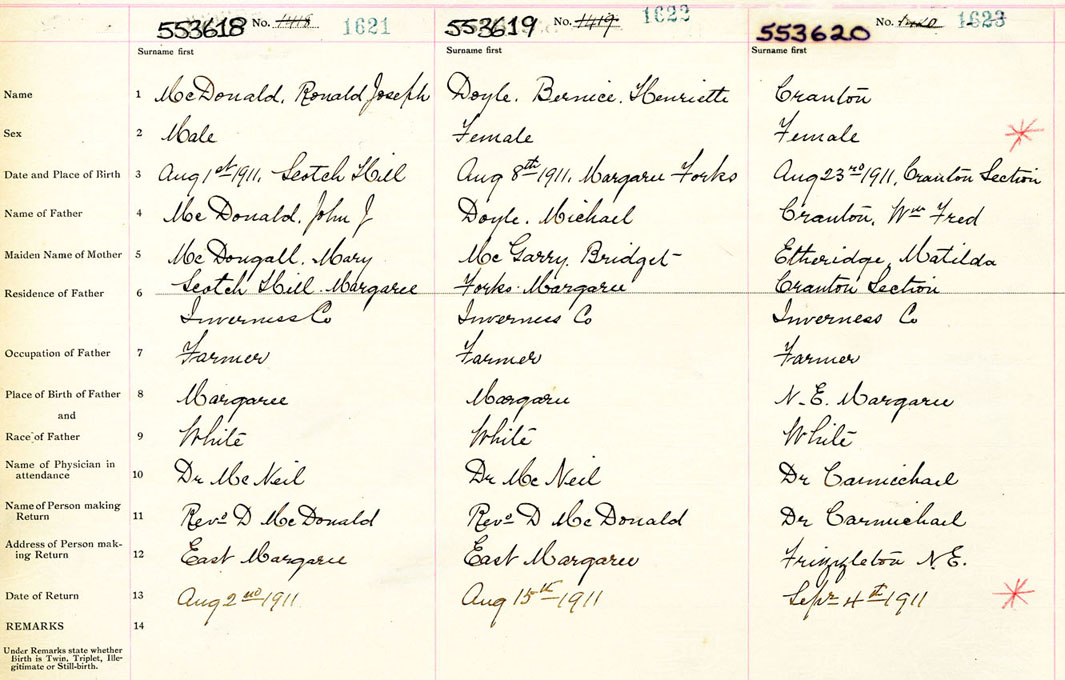 553618 No. 1418 1621 553619 No. 1419 1622 553620 No. 1420 1623
Surname first Surname first Surname first
Name 1 McDonald, Ronald Joseph Doyle. Bernice. Henriette Cranton
Sex 2 Male Female Female
Date and Place of Birth 3 Aug 1st 1911. Scotch Hill Aug 8th 1911. Margaree Forks Aug 23rd 1911, Cranton Section
Name of Father 4 McDonald, John J Doyle. Michael Cranton, Wm Fred
Maiden Name of Mother 5 McDougall. Mary McGarry. Bridget Etheridge, Matilda
Residence of Father 6 Scotch Hill. Margaree Forks. Margaree Cranton Section
Inverness Co Inverness Co Inverness Co
Occupation of Father 7 Farmer Farmer Farmer
Place of Birth of Father 8 Margaree Margaree N.E. Margaree
and
Race of Father 9 White White White
Name of Physician in
attendance 10 Dr McNeil Dr McNeil Dr Carmichael
Name of Person making
Return 11 Revd D McDonald Revd D McDonald Dr Carmichael
Address of Person mak-
ing Return 12 East Margaree East Margaree N.E.
Date of Return 13 Aug 2nd 1911 Aug 15th 1911 Sepr 4th 1911
REMARKS 14
Under Remarks state whether
Birth is Twin, Triplet, Ille-
gitimate or Still-birth.